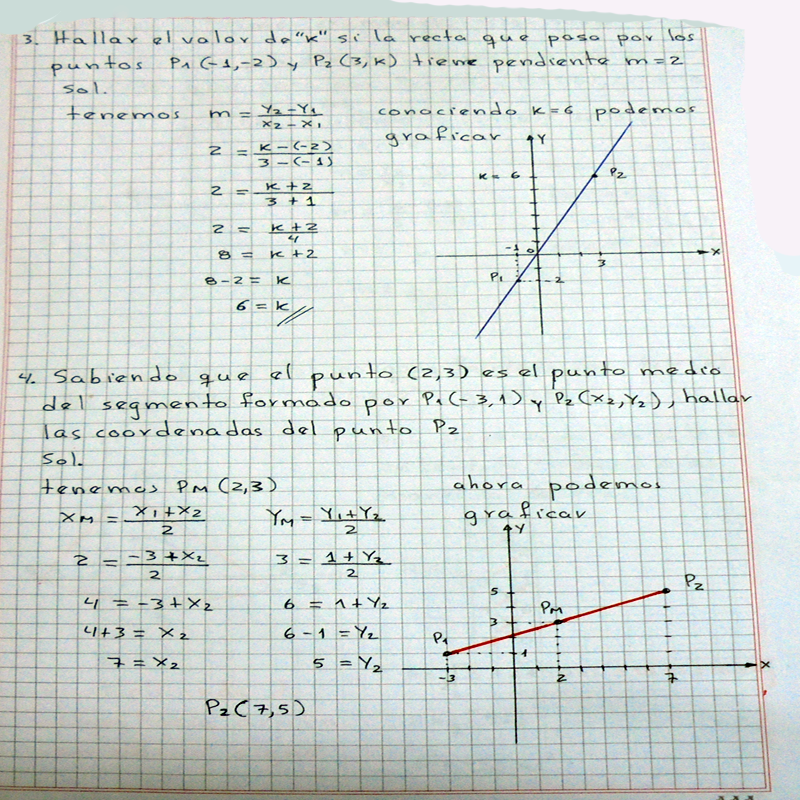 3. Hallar el valor de "K" si la recta que pasa por los
puntos P1(-1,-2) y P2(3,K) tiene pendiente m=2
sol.
tenemos m = (Y2-Y1)/(X2-X1)
2 = (K-(-2))/(3-(-1))
2 = (K+2)/(3+1)
2 = (K+2)/4
8 = K+2
8-2 = K
6 = K
conociendo K=6 podemos
graficar
Y
K= 6
P2
-1 0
X
3
P1
-2
4. Sabiendo que el punto (2,3) es el punto medio
del segmento formado por P1(-3,1) y P2(X2,Y2), hallar
las coordenadas del punto P2
Sol.
tenemos PM(2,3)
XM = (X1+X2)/2
2 = (-3+X2)/2
4 = -3+X2
4+3 = X2
7 = X2
YM = (Y1+Y2)/2
3 = (1+Y2)/2
6 = 1+Y2
6-1 = Y2
5 = Y2
P2(7,5)
ahora podemos
graficar
Y
5
P2
PM
3
P1
1
X
-3
2
7